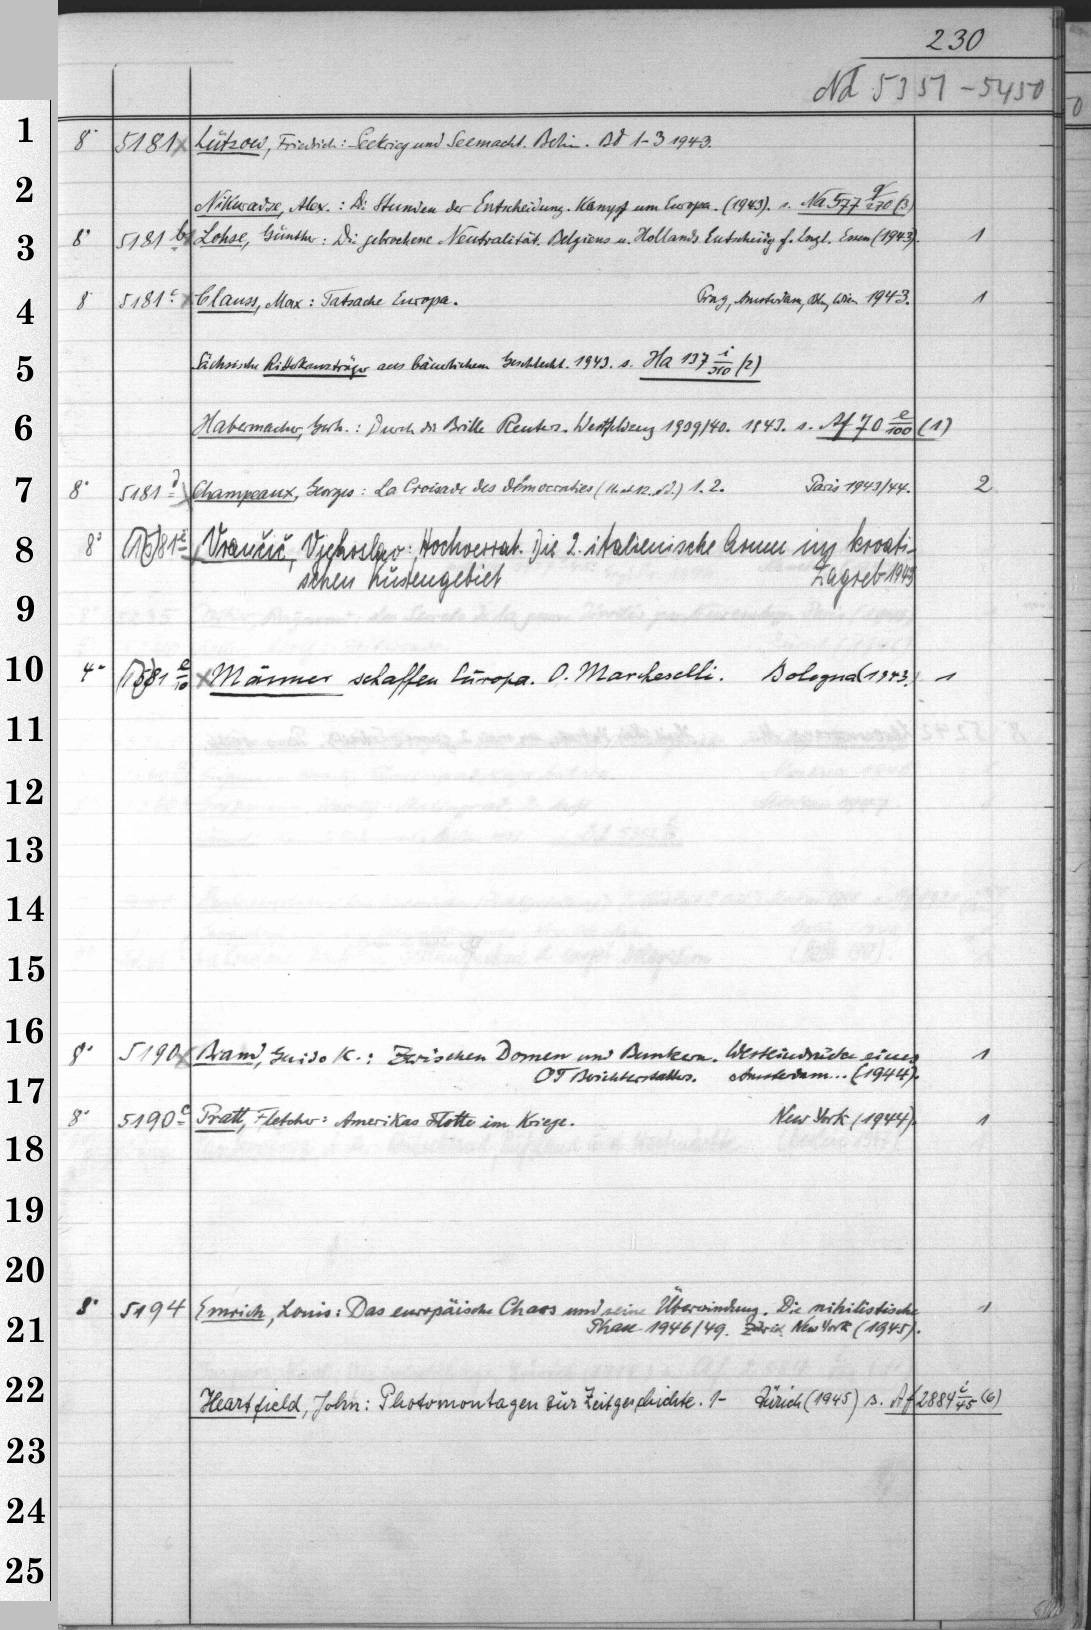 230
Nd 5351-5450
1 8° 5181 Lützow, Friedrich: Seekrieg und Seemacht. Berlin. Bd 1-3 1943.
2 Nikuradse, Alex.: Die Stunden der Entscheidung. Kampf um Europa. (1943). s. Na 577 g/270 (3)
3 8° 5181 b Lohse, Günther: Die gebrochene Neutralität. Belgiens u. Hollands Entscheidg f. Engl. Essen (1943). 1
4 8° 5181 c Clauss, Max: Tatsache Europa. Prag, Amsterdam, Bln, Wien 1943. 1
5 Sächsische Ritterkreuzträger aus bäuerlichem Geschlecht. 1943. s. Ha 137 i/310 (2)
6 Habermacher, Gerh.: Durch die Brille Reuters. Westfeldzug 1939/40. 1943. s. Af 70 e/100 (1)
7 8° 5181 d Champeaux, Georges: La Croisade des démocraties 1. 2. Paris 1943/44. 2
8 8° (15)81 e Vrančić, Vjekoslav: Hochverrat. Die 2. italienische Armee im kroati-
schen Küstengebiet Zagreb 1943
9
10 4° (15)81 e/10 Männer schaffen Europa. O. Marcheselli. Bologna (1943.) 1
11
12
13
14
15
16 8° 5190 Brand, Guido K.: Zwischen Domen und Bunkern. Westeindrücke eines 1
OT Berichterstatters. Amsterdam... (1944).
17
8° 5190 c Pratt, Fletcher: Amerikas Flotte im Kriege. New York (1944). 1
18
19
20
8° 5194 Emrich, Louis: Das europäische Chaos und seine Überwindung. Die nihilistische 1
21 Phase 1946/49. Zürich New York (1945).
22 Heartfield, John: Photomontagen zur Zeitgeschichte. 1- Zürich (1945) s. Af 2884 i/45 (6)
23
24
25